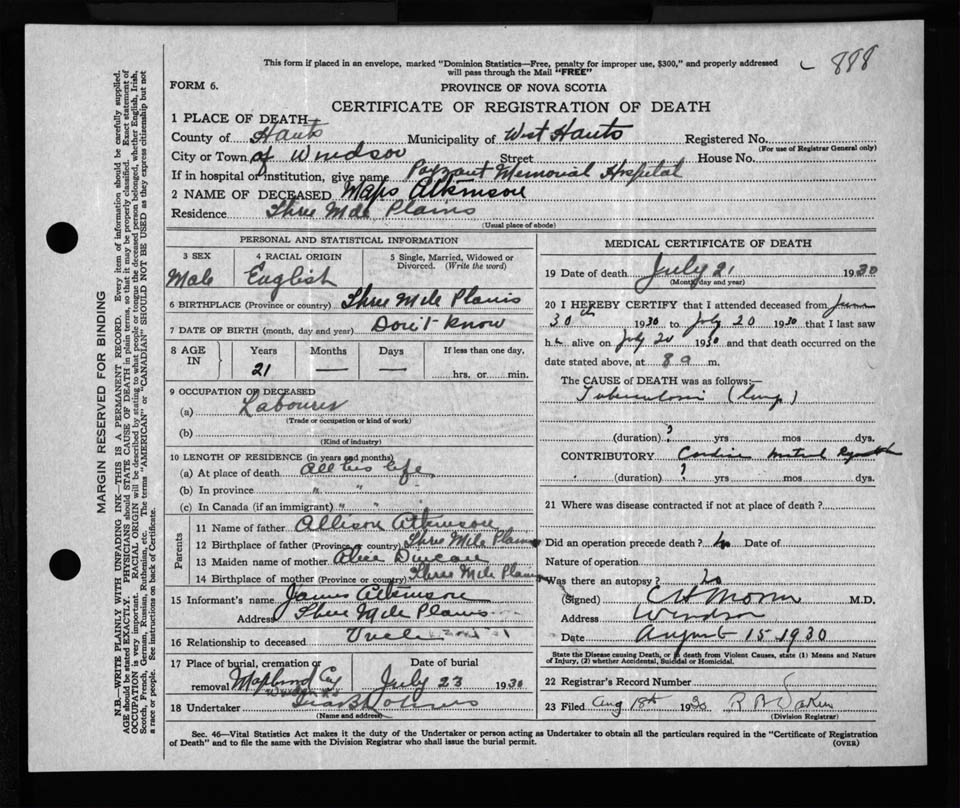 888
This form if placed in an envelope, marked "Dominion Statistics—Free, penalty for improper use, $300," and properly addressed
will pass through the Mail "FREE"
FORM 6.
PROVINCE OF NOVA SCOTIA
CERTIFICATE OF REGISTRATION OF DEATH
1 PLACE OF DEATH
County of Hants Municipality of West Hants Registered No.
(For use of Registrar General only)
City or Town of Windsor Street House No.
If in hospital or institution, give name Payzant Memorial Hospital
2 NAME OF DECEASED Atkinson
Residence Three Mile Plains
(Usual place of abode)
PERSONAL AND STATISTICAL INFORMATION
3 SEX 4 RACIAL ORIGIN 5 Single, Married, Widowed or
Divorced. (Write the word)
Male English
6 BIRTHPLACE (Province or country) Three Mile Plains
7 DATE OF BIRTH (month, day and year) Don't Know
8 AGE IN Years Months Days If less than one day,
21 — — hrs. or min.
9 OCCUPATION OF DECEASED
(a) Labourer
(Trade or occupation or kind of work)
(b)
(Kind of industry)
10 LENGTH OF RESIDENCE (in years and months)
(a) At place of death All his life
(b) In province " " "
(c) In Canada (if an immigrant) " "
Parents
11 Name of father Allison Atkinson
12 Birthplace of father (Province or country) Three Mile Plains
13 Maiden name of mother Alice Duncan
14 Birthplace of mother (Province or country) Three Mile Plains
15 Informant's name James Atkinson
Address Three Mile Plains
16 Relationship to deceased Uncle
17 Place of burial, cremation or Date of burial
removal July 23 1930
18 Undertaker
(Name and address)
MEDICAL CERTIFICATE OF DEATH
19 Date of death July 21 1930
(Month, day and year)
20 I HEREBY CERTIFY that I attended deceased from June
30th 1930 to July 20 1930 that I last saw
h alive on July 20 1930 and that death occurred on the
date stated above, at 8 a m.
The CAUSE of DEATH was as follows:—
Tuberculosis (lung)
(duration) ? yrs mos dys.
CONTRIBUTORY Cardiac
(duration) ? yrs mos dys.
21 Where was disease contracted if not at place of death?
Did an operation precede death? No Date of
Nature of operation
Was there an autopsy? No
(Signed) M.D.
Address Windsor
Date August 15 1930
State the Disease causing Death, or in death from Violent Causes, state (1) Means and
Nature of Injury, (2) whether Accidental, Suicidal or Homicidal.
22 Registrar's Record Number
23 Filed Aug 18th 1930
(Division Registrar)
Sec. 46—Vital Statistics Act makes it the duty of the Undertaker or person acting as Undertaker to obtain all the particulars required in the "Certificate of Registration
of Death" and to file the same with the Division Registrar who shall issue the burial permit.
(OVER)
MARGIN RESERVED FOR BINDING
N.B.—WRITE PLAINLY WITH UNFADING INK—THIS IS A PERMANENT RECORD. Every item of information should be carefully supplied.
AGE should be stated EXACTLY. PHYSICIANS should STATE CAUSE OF DEATH in plain terms, so that it may be properly classified. Exact statement of
OCCUPATION is very important. RACIAL ORIGIN will be described by stating to what people or tongue the deceased person belonged, whether English, Irish,
Scotch, French, German, Russian, Ruthenian, etc. The terms "AMERICAN" or "CANADIAN" SHOULD NOT BE USED as they express citizenship but not
a race or people. See instructions on back of Certificate.